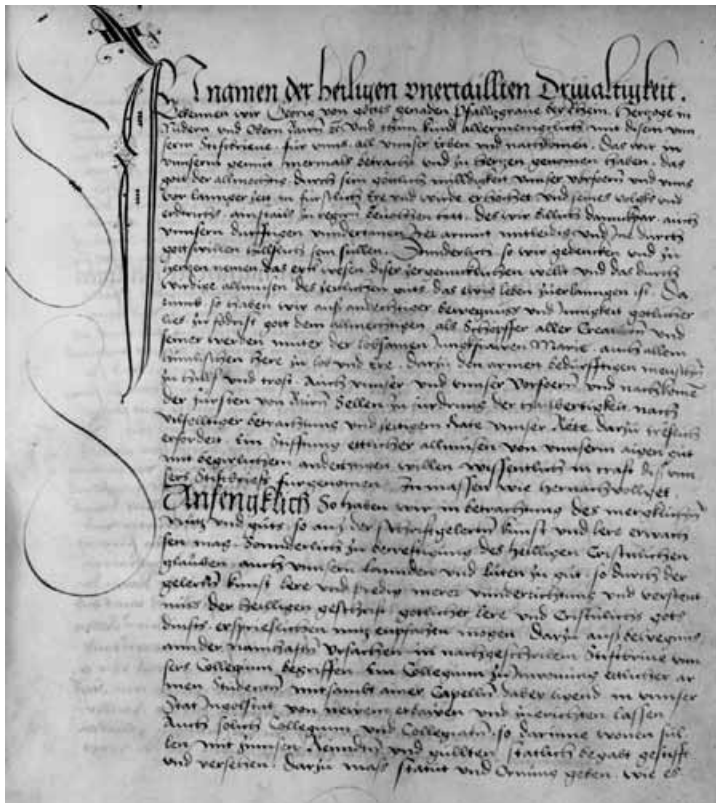 In namen der heiligen vnertaillten Drivaltigkeit.
Bekennen wir Georig von gottes genaden Pfalltzgraue bey Rhein Hertzoge in
Nidern vnd Obern Bairn und thun kundt allermenigclich mit disem vnn
serm Stifftbrieue, fur vnns, all vnnser erben vnd nachkomen. Das wir in
vnnserm gemut mermals betracht vnd zu hertzen genomen haben, das
got der allmechtig durch sein gotlich milldigkeit vnnser vorfordern vnd vnns
vor lannger zeit in furstlich Ere vnd wirde erhöhet vnd seines volgks vnd
erdtrichs zu regirn beuolhen hat, des wir billich danngkpar, auch
vnnsern durfftigen vnndertanen Irer armut mitleidig vnd Ine durch
gotzwillen hilfflich sein sullen. Sonnderlich so wir gedencken vnd zu
hertzen nemen, das wesen diser zergenncklichen wellt vnd das durch
wirdige allmusen des zeitlichen guts, das ewig leben zuerlanngen ist. Da
rumb so haben wir aus anndechtiger bewegnuss vnd Innigkeit gotlicher
lieb zu fodrist got dem allmechtigen als Schöpffer aller Creaturn vnd
seiner werden muter der lobsamen Junckfrawen Marie, auch allem
himlischen here zu lob vnd Ere, darzu den armen bedurfftigen mennschen
zu hilff vnd trost, Auch vnnser vnd vnnser Vorfordern vnd nachkomen
der fursten von Bairn Sellen zu furdrung der nach
vilfelltiger betrachtung vnd zeitigem Rate vnnser Räte darzu
erfordert. Ein Stifftung ettlicher allmusen von vnnserm aigen gut
mit begirlichem anndechtigen willen wissentlich in crafft diss vnn
sers Stifftbriefs furgenomen. In massen wie hernachvollget.
Anfengklich So haben wir in betrachtung des mercklichen
nutz vnd guts, so aus der schrifftgelerten kunst vnd lere erwach
sen mag, Sonnderlich zu bevestigung des heiligen Cristenlichen
glauben, auch vnnsern Lannden vnd luten zu gut, so durch der
gelerten kunst lere vnd predig merer vnnderrichtung vnd verstent
nuss der heilligen geschrifft gotlicher lere vnd Cristenlichs gots
diensts erspriesslichen nutz empfahen mogen. Darzu aus bewegnus
annder namhaffter vrsachen in nachgeschribem Stifftbrieue vnn
sers Collegium begriffen. Ein Collegium zu Inwonung ettlicher ar
men Studenten mitsambt ainer Capellen dabey ligend in vnnser
Stat Ingolstat von newem erbawen vnd zuerichten lassen.
Auch solich Collegium vnd Collegiaten, so darinne wonen sul
len mit zinnsen Rennten vnd gullten statlich begabt gestifft
vnd versehen. Darzu mass statut vnd Ornung geben, wie es